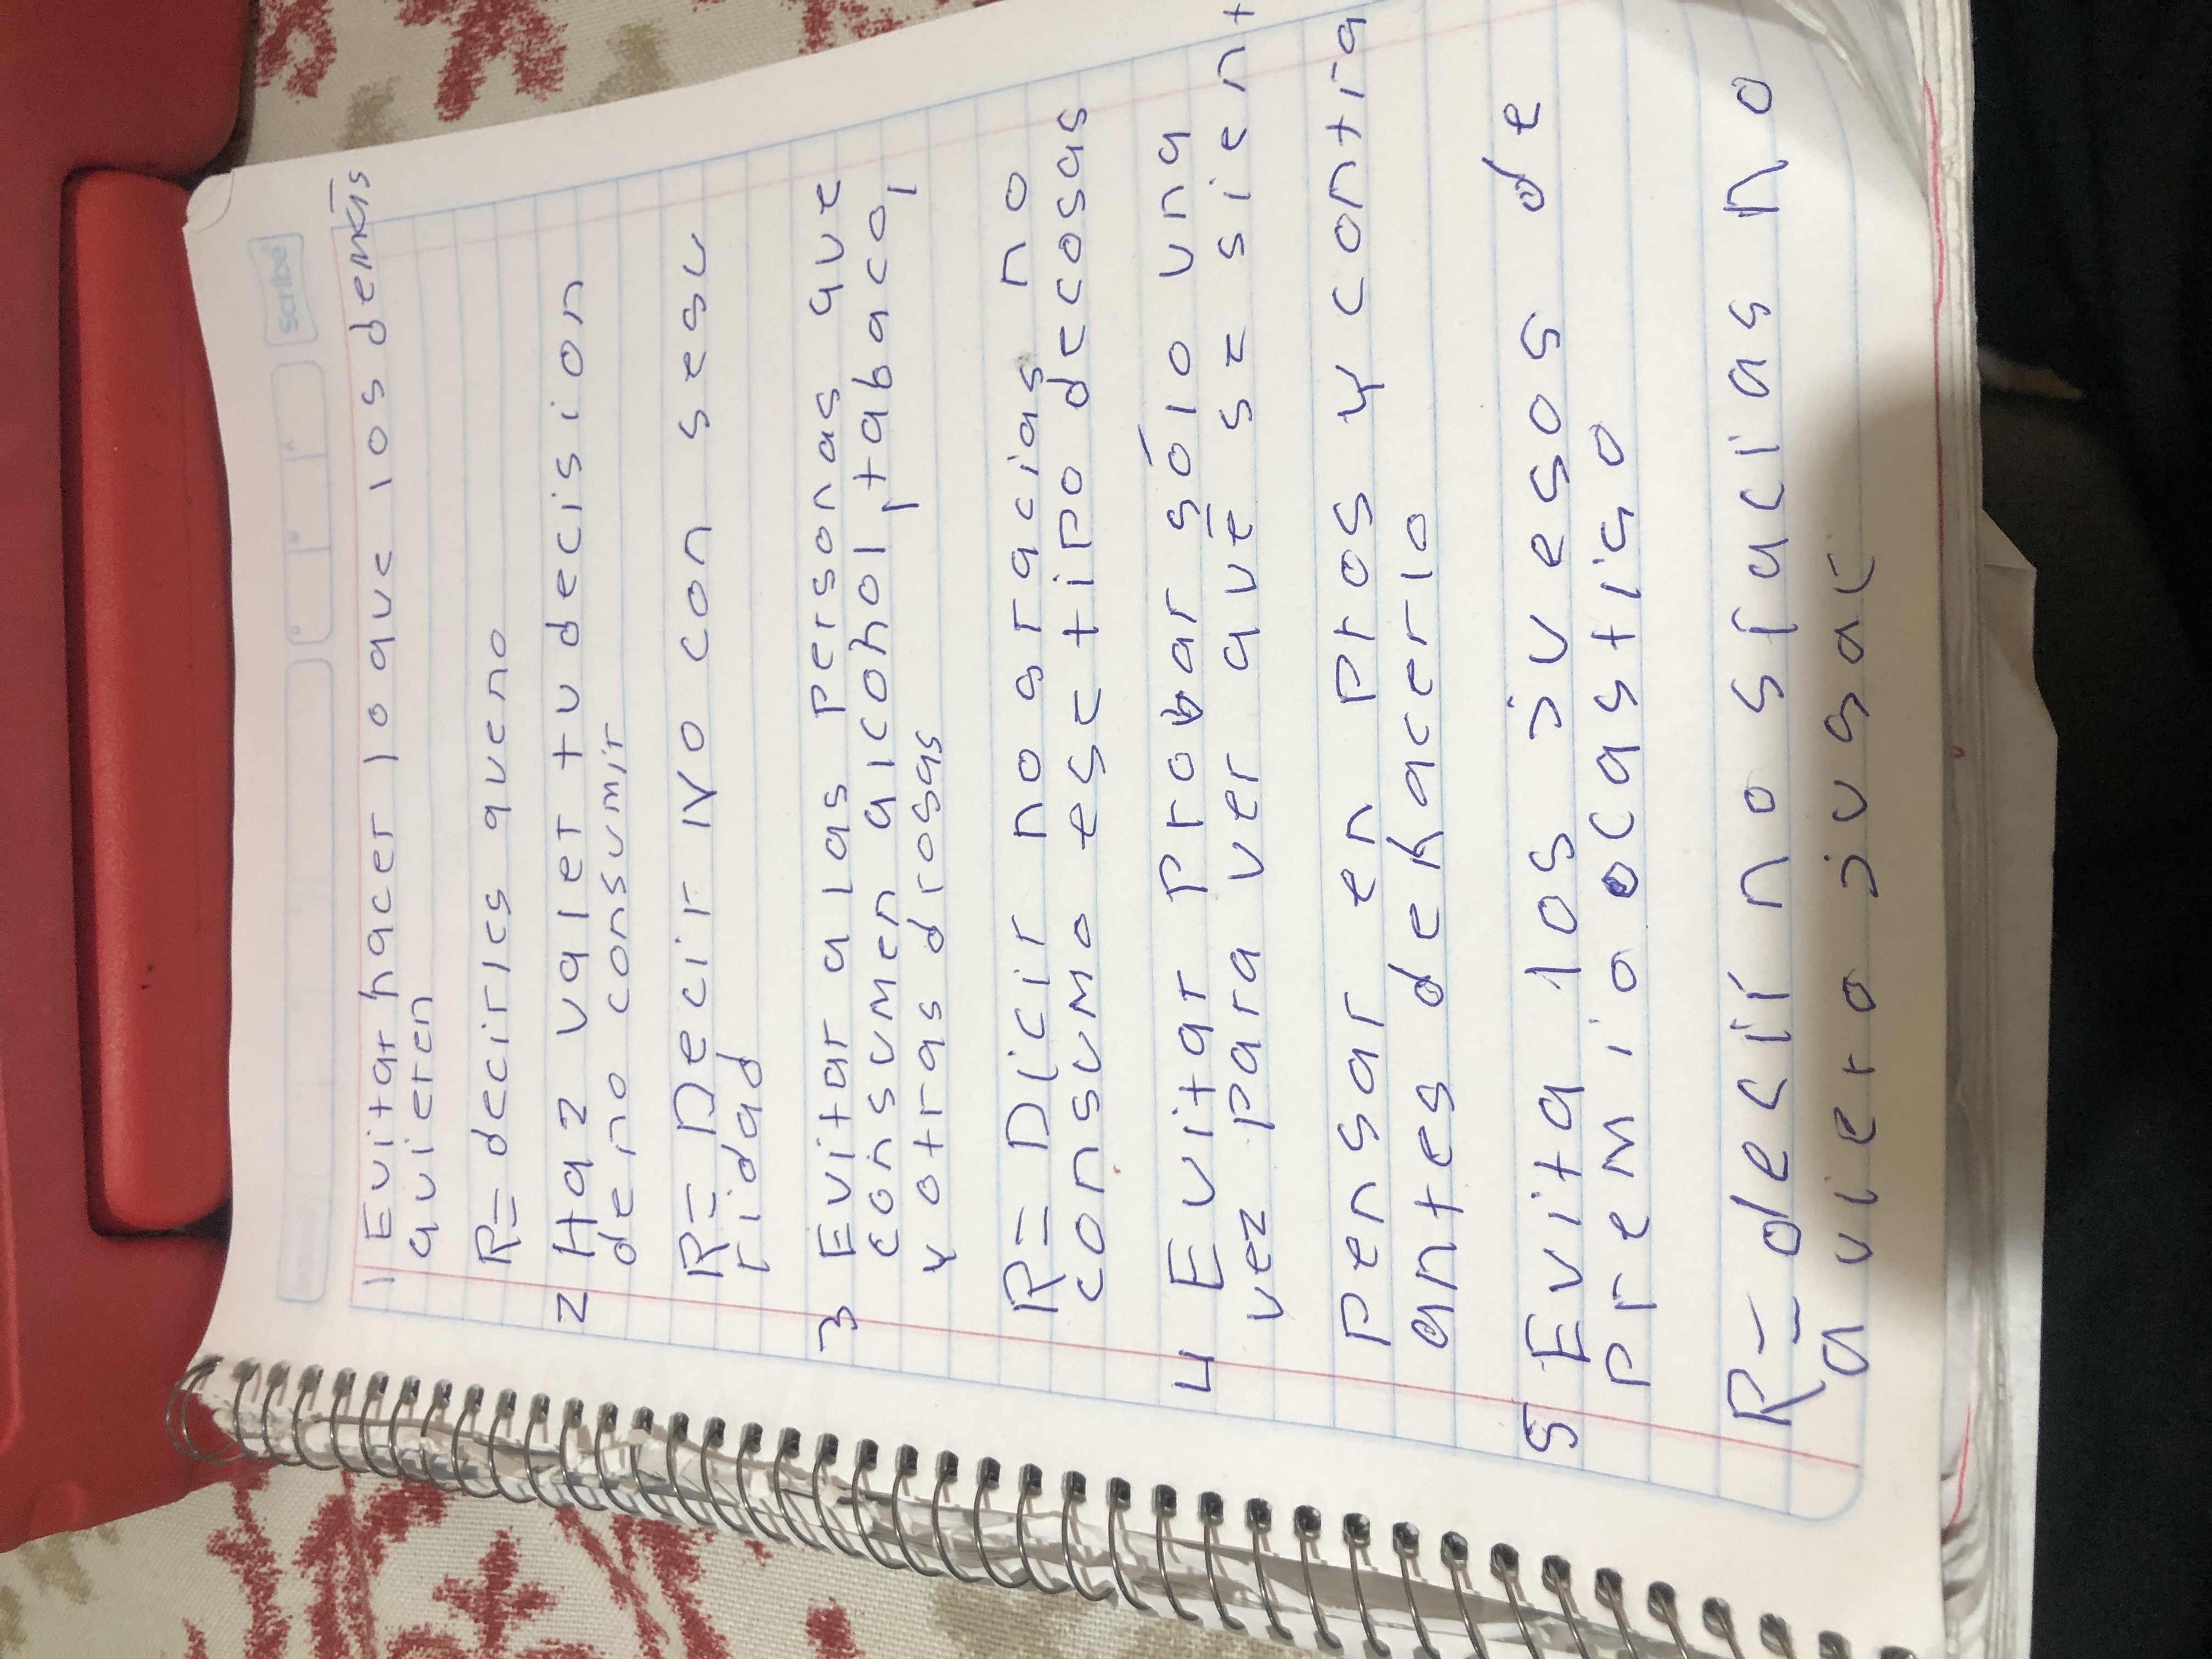 scribe
1 Evitar hacer loque los demás
quieren
R= decirles queno
2 Haz valer tu decision
de no consumir
R= Decir NO con segu
ridad
3 Evitar a las personas que
consumen alcohol, tabaco,
y otras drogas
R= Dicir no gracias no
consumo ese tipo decosas
4 Evitar probar sólo una
vez para ver que se sient
pensar en pros y contra
antes dehacerlo
5 Evita los juegos de
premio o castigo
R= decir no gracias no
quiero jugar